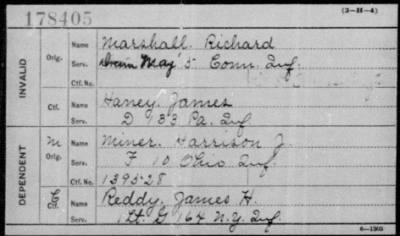 178405
(3-H-4)
INVALID
Orig. Name Marshall, Richard
Serv. Drum Maj 5 Conn. Inf.
Ctf. No.
Ctf. Name Haney, James
Serv. D 53 Pa. Inf.
DEPENDENT
M Orig. Name Miner, Harrison J.
Serv. F 10 Ohio Inf.
Ctf. No. 139528
Ctf. Name Reddy, James H.
Serv. 1 Lt. G 164 N.Y. Inf.